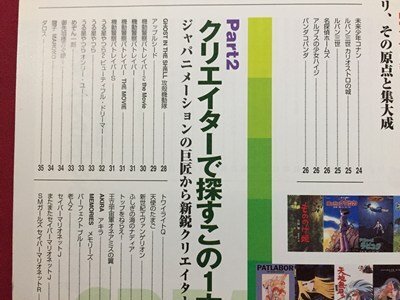 リ、その原点と集大成
未来少年コナン 24
ルパン三世 カリオストロの城 25
ルパン三世 25
名探偵ホームズ 26
アルプスの少女ハイジ 26
パンダコパンダ 26
Part2
クリエイターで探すこの1本
ジャパニメーションの巨匠から新鋭クリエイター
GHOST IN THE SHELL 攻殻機動隊 28
アップルシード 28
機動警察パトレイバー2 the Movie 29
機動警察パトレイバー THE MOVIE 30
機動警察パトレイバー 31
うる星やつら2 ビューティフル・ドリーマー 32
うる星やつら オンリー・ユー 33
うる星やつら 33
めぞん一刻 34
御先祖様万々歳! 34
トワイライトQ
天使のたまご
新世紀エヴァンゲリオン
ふしぎの海のナディア
トップをねらえ!
王立宇宙軍 オネアミスの翼
AKIRA アキラ
MEMORIES メモリーズ
パーフェクトブルー
老人Z
セイバーマリオネットJ
またまたセイバーマリオネットJ
SMガールズ セイバーマリオネットR
PATLABOR